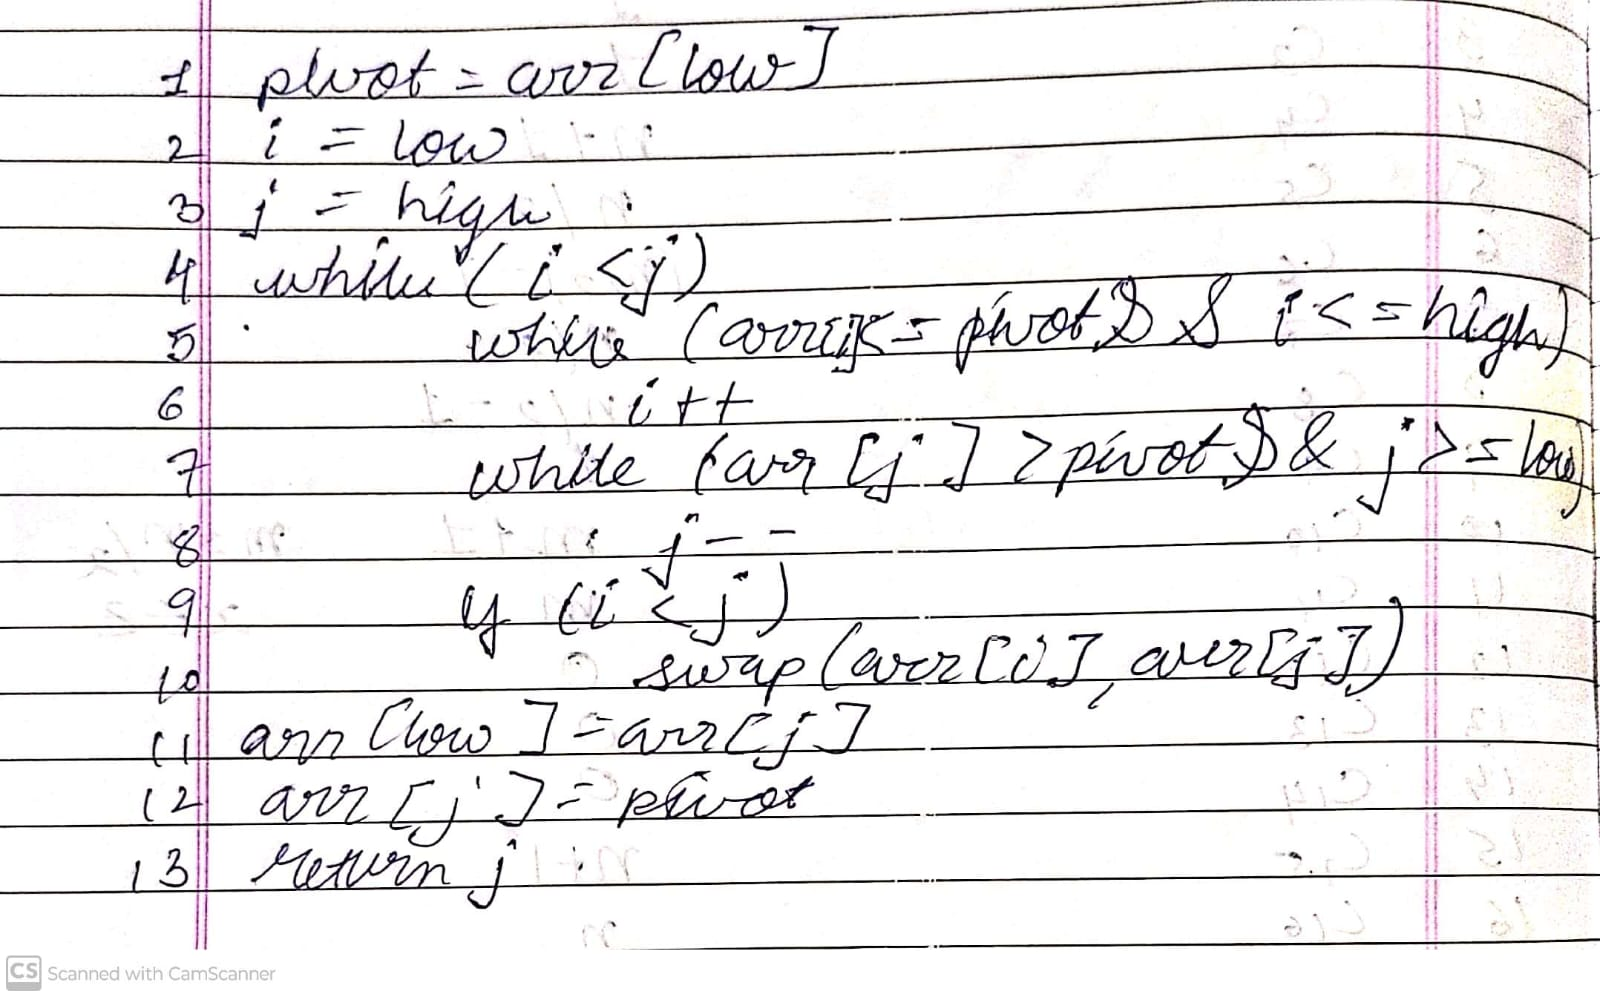 1 pivot = arr [low]
2 i = low
3 j = high
4 while ( i < j )
5 while (arr[i] <= pivot && i <= high)
6 i++
7 while (arr [j] > pivot && j >= low)
8 j--
9 if (i < j)
10 swap (arr[i], arr[j])
11 arr [low] = arr[j]
12 arr [j] = pivot
13 return j
CS Scanned with CamScanner